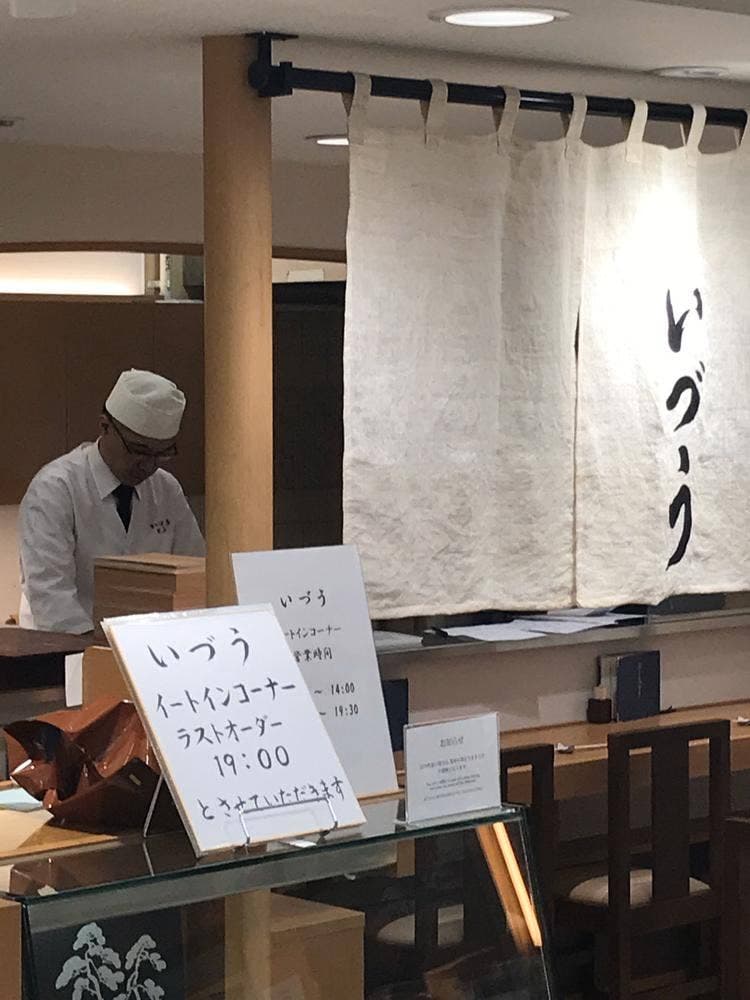 いづう
いづう
イートインコーナー
ラストオーダー
19:00
とさせていただきます
いづう
ートインコーナー
営業時間
～ 14:00
～ 19:30
お知らせ